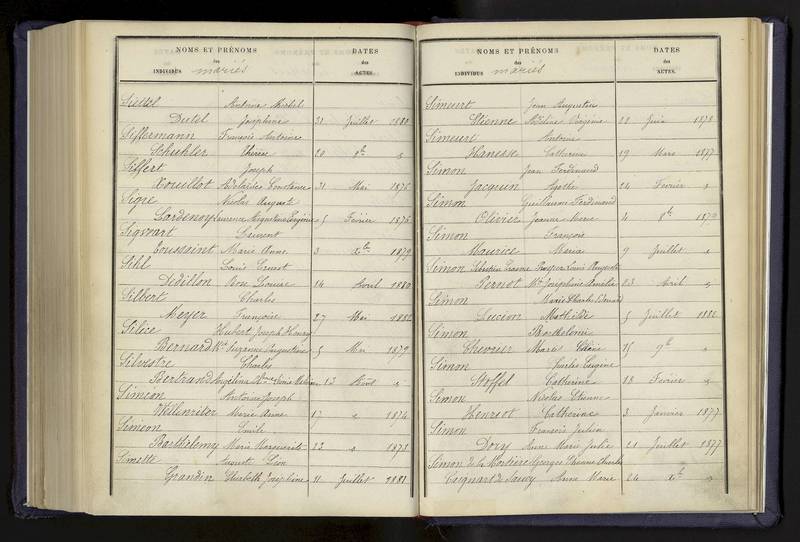 NOMS ET PRÉNOMS
des
INDIVIDUS mariés
DATES
des
ACTES.
Sieffel Antoine Michel
Dutel Joséphine 31 Juillet 1880
Siffermann François Antoine
Schuhler Thérèse 20 8bre "
Siffert Joseph
Rouillot Adélaïde Constance 31 Mai 1876
Signe Nicolas Auguste
Lardenoy Laurence Augustine 5 Février 1876
Sigwart Laurent
Toussaint Marie Anne 3 Xbre 1879
Sihl Louis Ernest
Dédillon Rose Louise 14 Avril 1880
Silbert Charles
Meyer Françoise 27 Mai 1882
Silice Hubert Joseph Henry
Bernard Suzanne Augustine 5 Mai 1879
Silvestre Charles
Bertrand Angélina 13 Août "
Siméon Antoine Joseph
Willenriter Marie Anne 17 " 1874
Siméon Emile
Barthélemy Marie Marguerite 22 " 1878
Simette Auguste Léon
Grandin Elisabeth Joséphine 11 Juillet 1881
NOMS ET PRÉNOMS
des
INDIVIDUS mariés
DATES
des
ACTES.
Simeurt Jean Augustin
Etienne Virginie 22 Juin 1878
Simeurt Antoine
Hanesse Catherine 19 Mars 1877
Simon Jean Ferdinand
Jacquin Agathe 24 Février "
Simon Guillaume Ferdinand
Olivier Jeanne Marie 4 8bre 1879
Simon François
Maurice Maria 9 Juillet "
Simon Prosper Louis Auguste
Pernot Mie Joséphine Amélie 23 Avril "
Simon Marie Charles Edouard
Lucion Mathilde 5 Juillet 1881
Simon Barthélemie
Chevrier Marie 15 9bre "
Simon Charles Eugène
Stoffel Catherine 18 Février "
Simon Nicolas Etienne
Henriot Catherine 3 Janvier 1877
Simon François Julien
Dory Anne Marie Julie 21 Juillet 1877
Simon de la Mortière Georges Etienne Charles
Anne Marie 24 Xbre "